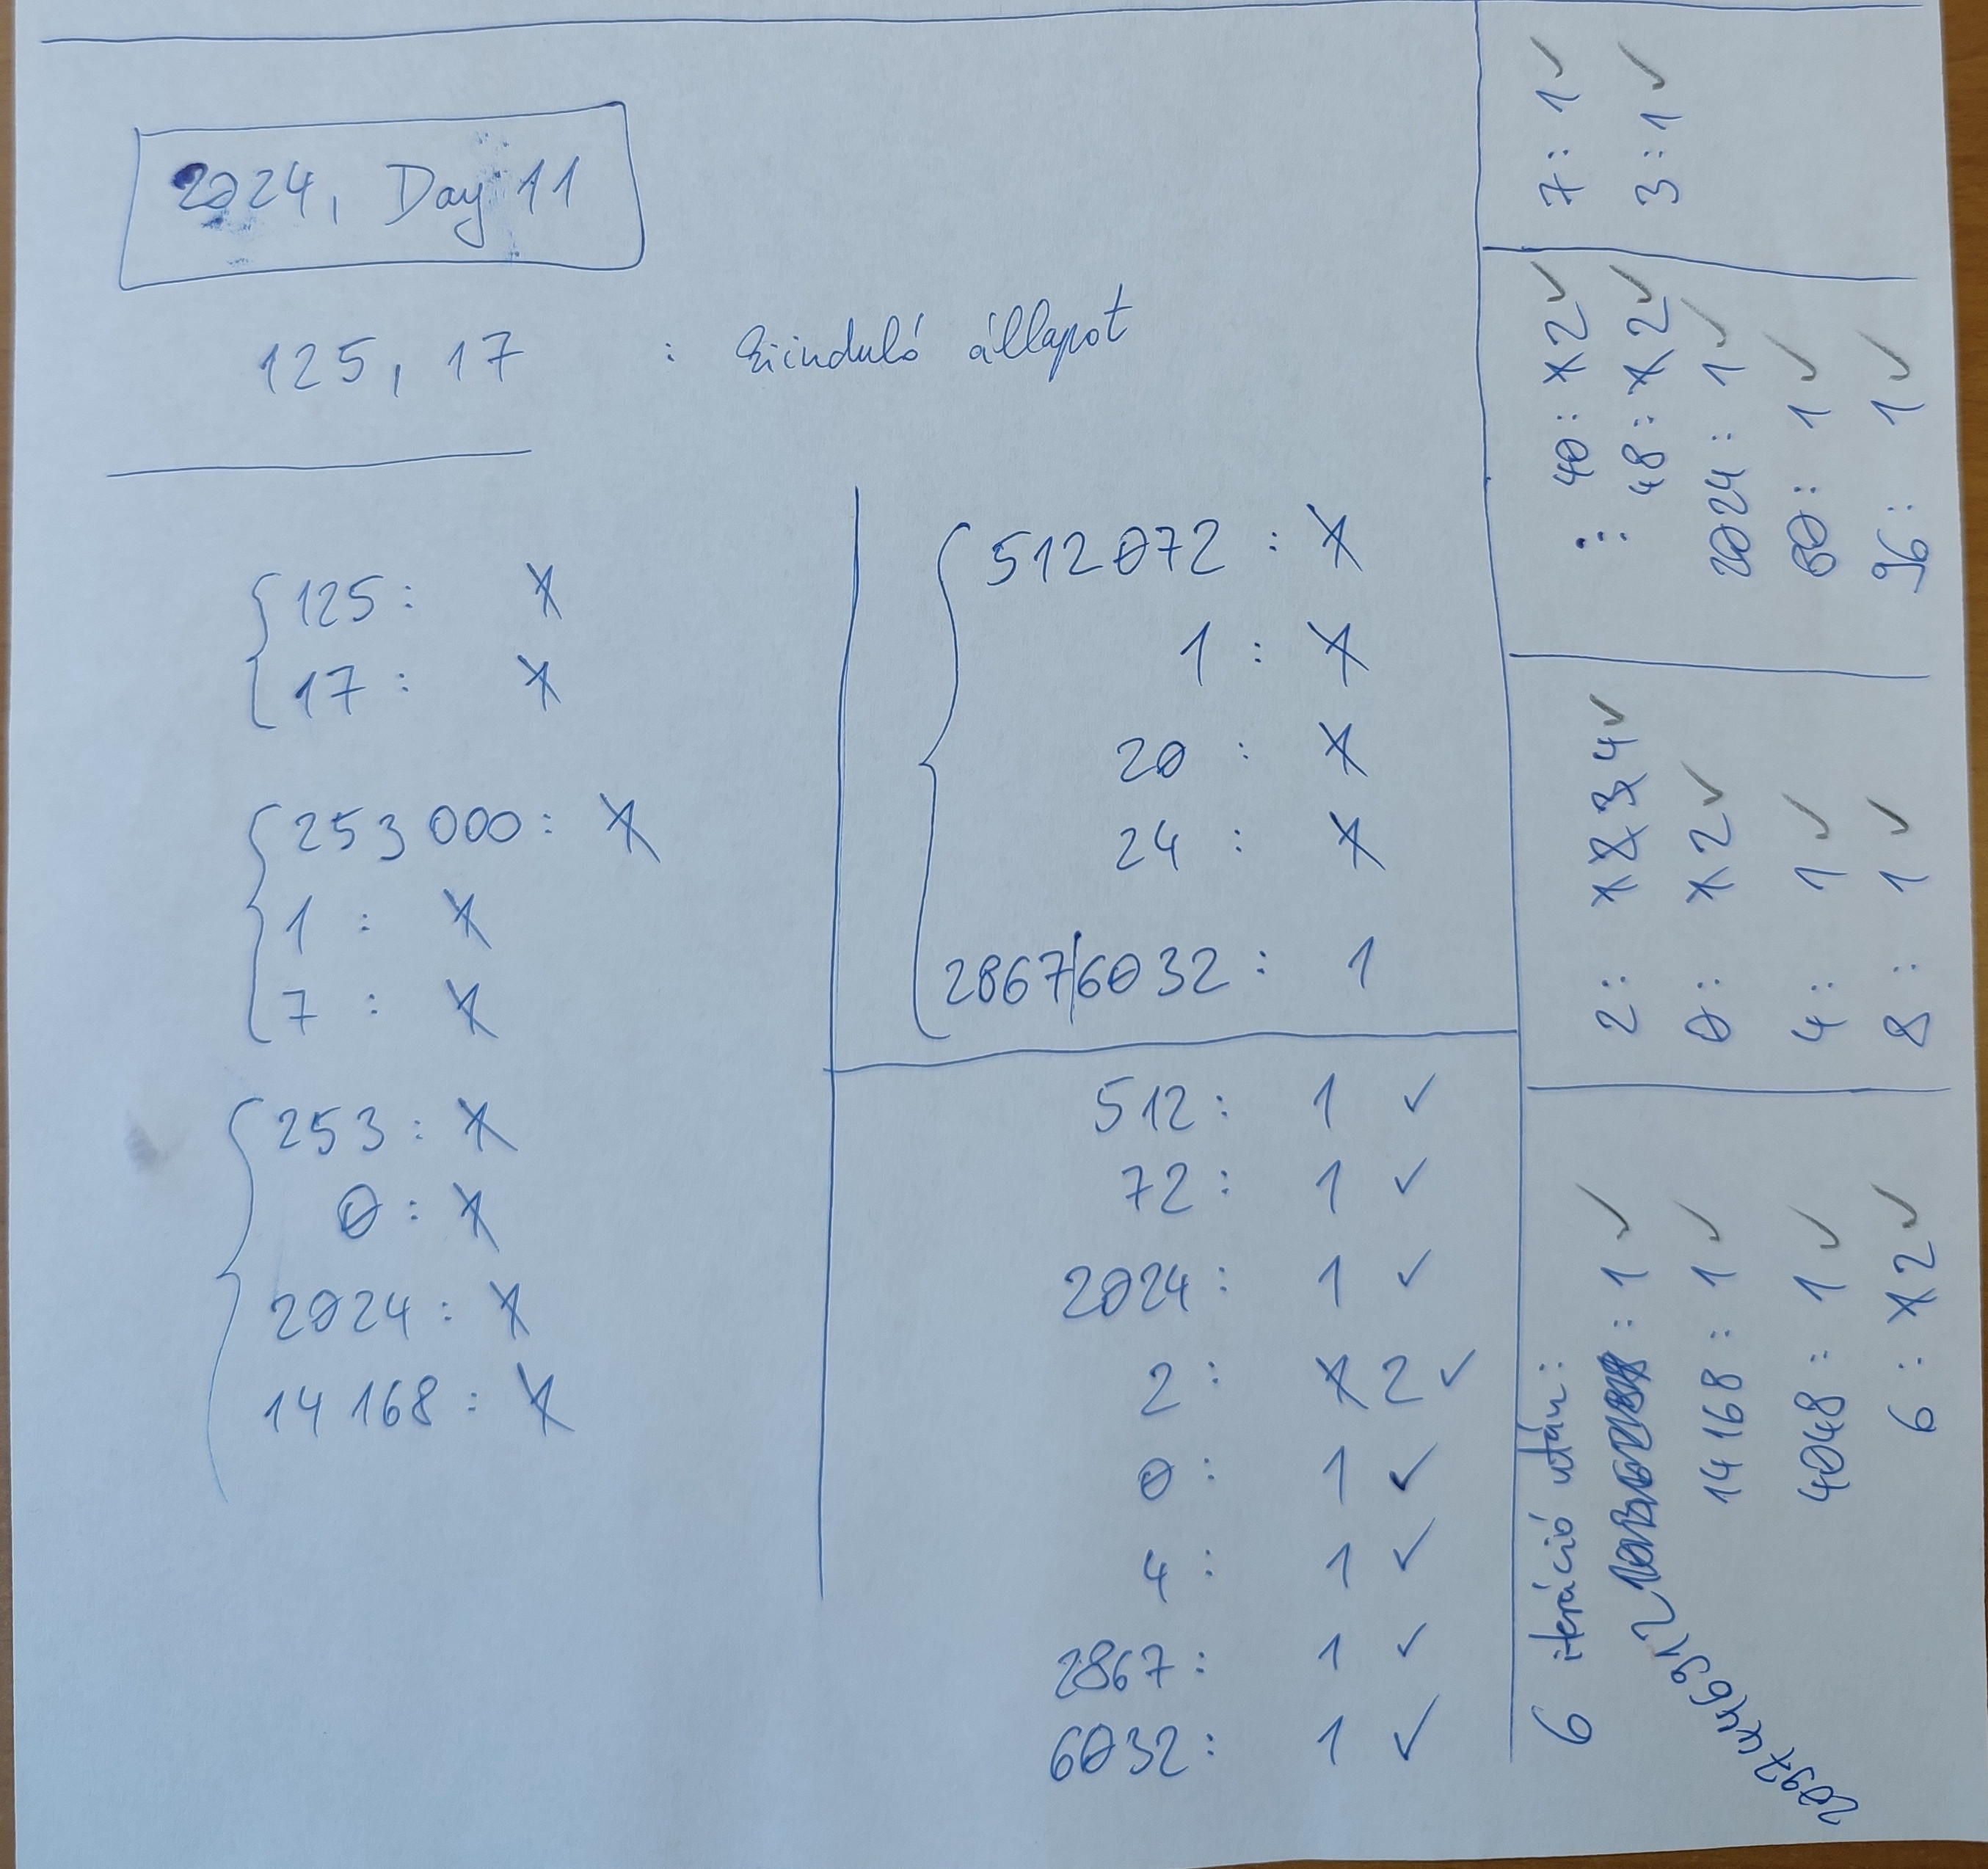 2024, Day 11
125, 17 : kiinduló állapot
125: 1
17: 1
253 000: 1
1: 1
7: 1
253: 1
0: 1
2024: 1
14 168: 1
512072: 1
1: 1
20: 1
24: 1
2867|6032: 1
512: 1 ✓
72: 1 ✓
2024: 1 ✓
2: 1 2 ✓
0: 1 ✓
4: 1 ✓
2867: 1 ✓
6032: 1 ✓
6 iteráció után:
2097446912: 1 ✓
14 168: 1 ✓
4048: 1 ✓
6: 1 2 ✓
2: 1 2 3 4 ✓
0: 1 2 ✓
4: 1 ✓
8: 1 ✓
40: 1 2 ✓
48: 1 2 ✓
2024: 1 ✓
60: 1 ✓
96: 1 ✓
7: 1 ✓
3: 1 ✓